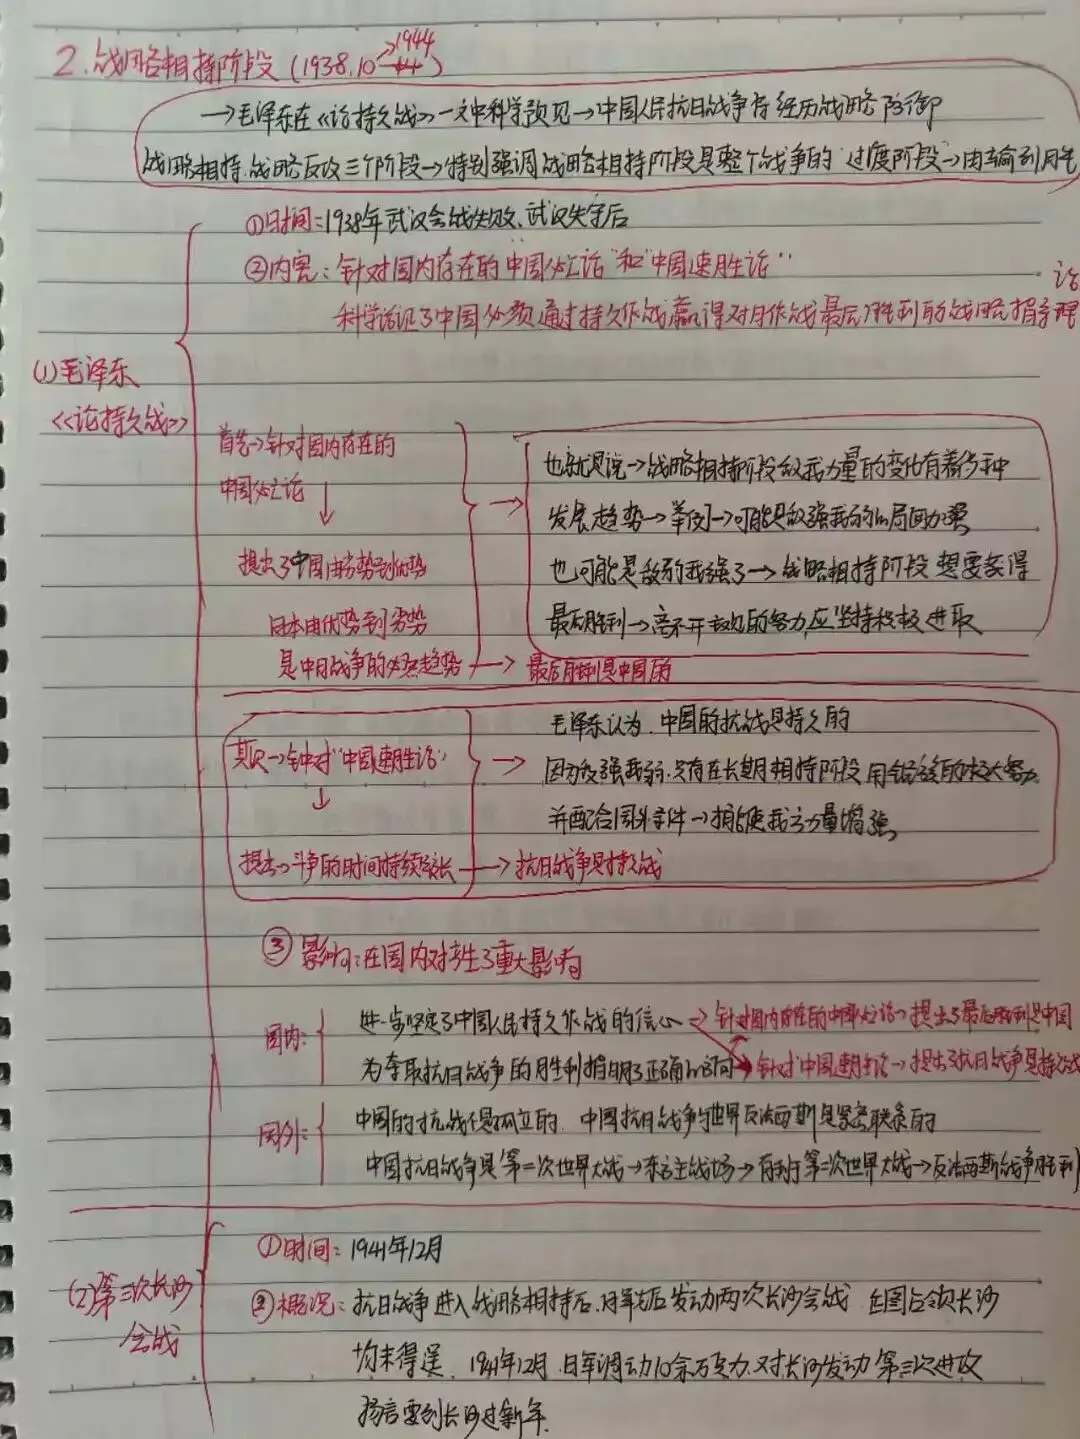 2.战略相持阶段(1938.10→1944)
→毛泽东在《论持久战》一文中科学预见→中国人民抗日战争将经历战略防御
战略相持.战略反攻三个阶段→特别强调战略相持阶段是整个战争的过度阶段→由输到
①时间:1938年武汉会战失败、武汉失守后
②内容:针对国内存在的"中国必亡论"和"中国速胜论"
科学论证了中国必须通过持久作战赢得对日作战最后胜利的战略指导理
论
(1)毛泽东
《论持久战》
首先→针对国内存在的
中国必亡论
↓
提出了中国由劣势到优势
日本由优势到劣势
是中日战争的必然趋势→最后胜利是中国的
→也就是说→战略相持阶段敌我力量的变化有着多种
发展趋势→举例→可能是敌强我弱的局面加强
也可能是敌弱我强了→战略相持阶段想要获得
最后胜利→离不开主观的努力,应坚持积极进取
其次→针对"中国速胜论"
↓
提出→斗争的时间持续较长→抗日战争是持久战
→毛泽东认为.中国的抗战是持久的
因为敌强我弱.只有在长期相持阶段用的极大努力
并配合国外条件→才能使我方力量增强
③影响:在国内外产生了重大影响
国内:
进一步坚定了中国人民持久作战的信心→针对国内存在的中国必亡论→提出了最后胜利是中国
为夺取抗日战争的胜利指明了正确的方向→针对"中国速胜论→提出了抗日战争是持久战
国外:
中国的抗战不是孤立的.中国抗日战争与世界反法西斯是紧密联系的
中国抗日战争是第二次世界大战→东方主战场→有利于第二次世界大战→反法西斯战争胜利
(2)第三次长沙
会战
①时间:1941年12月
②概况:抗日战争进入战略相持后.日军先后发动两次长沙会战.企图占领长沙
均未得逞.1941年12月.日军调动10余万兵力.对长沙发动第三次进攻
扬言要到长沙过新年.